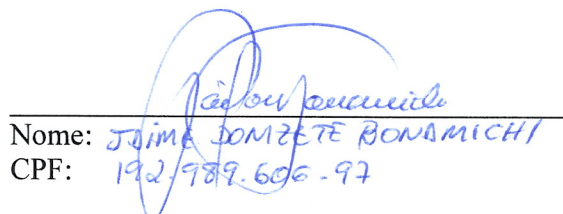 Nome: JAIME DONIZETE BONAMICHI
CPF: 192.989.606-97